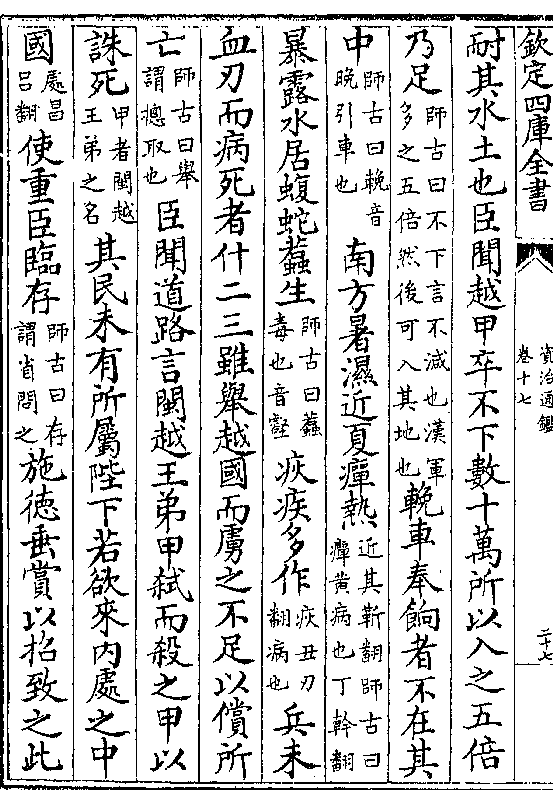 欽定四庫全書
資治通鑑
卷十七
二十七
耐其水土也臣聞越甲卒不下數十萬所以入之五倍
乃足師古曰不下言不減也漢軍多之五倍然後可入其地也輓車奉餉者不在其
中師古曰輓音晚引車也南方暑濕近夏癉熱近其靳翻師古曰癉黄病也丁幹翻
暴露水居蝮蛇蠚生師古曰蠚毒也音壑疢疾多作疢丑刃翻病也兵未
血刃而病死者什二三雖舉越國而虜之不足以償所
亡師古曰舉謂摠取也臣聞道路言閩越王弟甲弑而殺之甲以
誅死甲者閩越王弟之名其民未有所屬陛下若欲來内處之中
國處昌吕翻使重臣臨存師古曰存謂省問之施德垂賞以招致之此